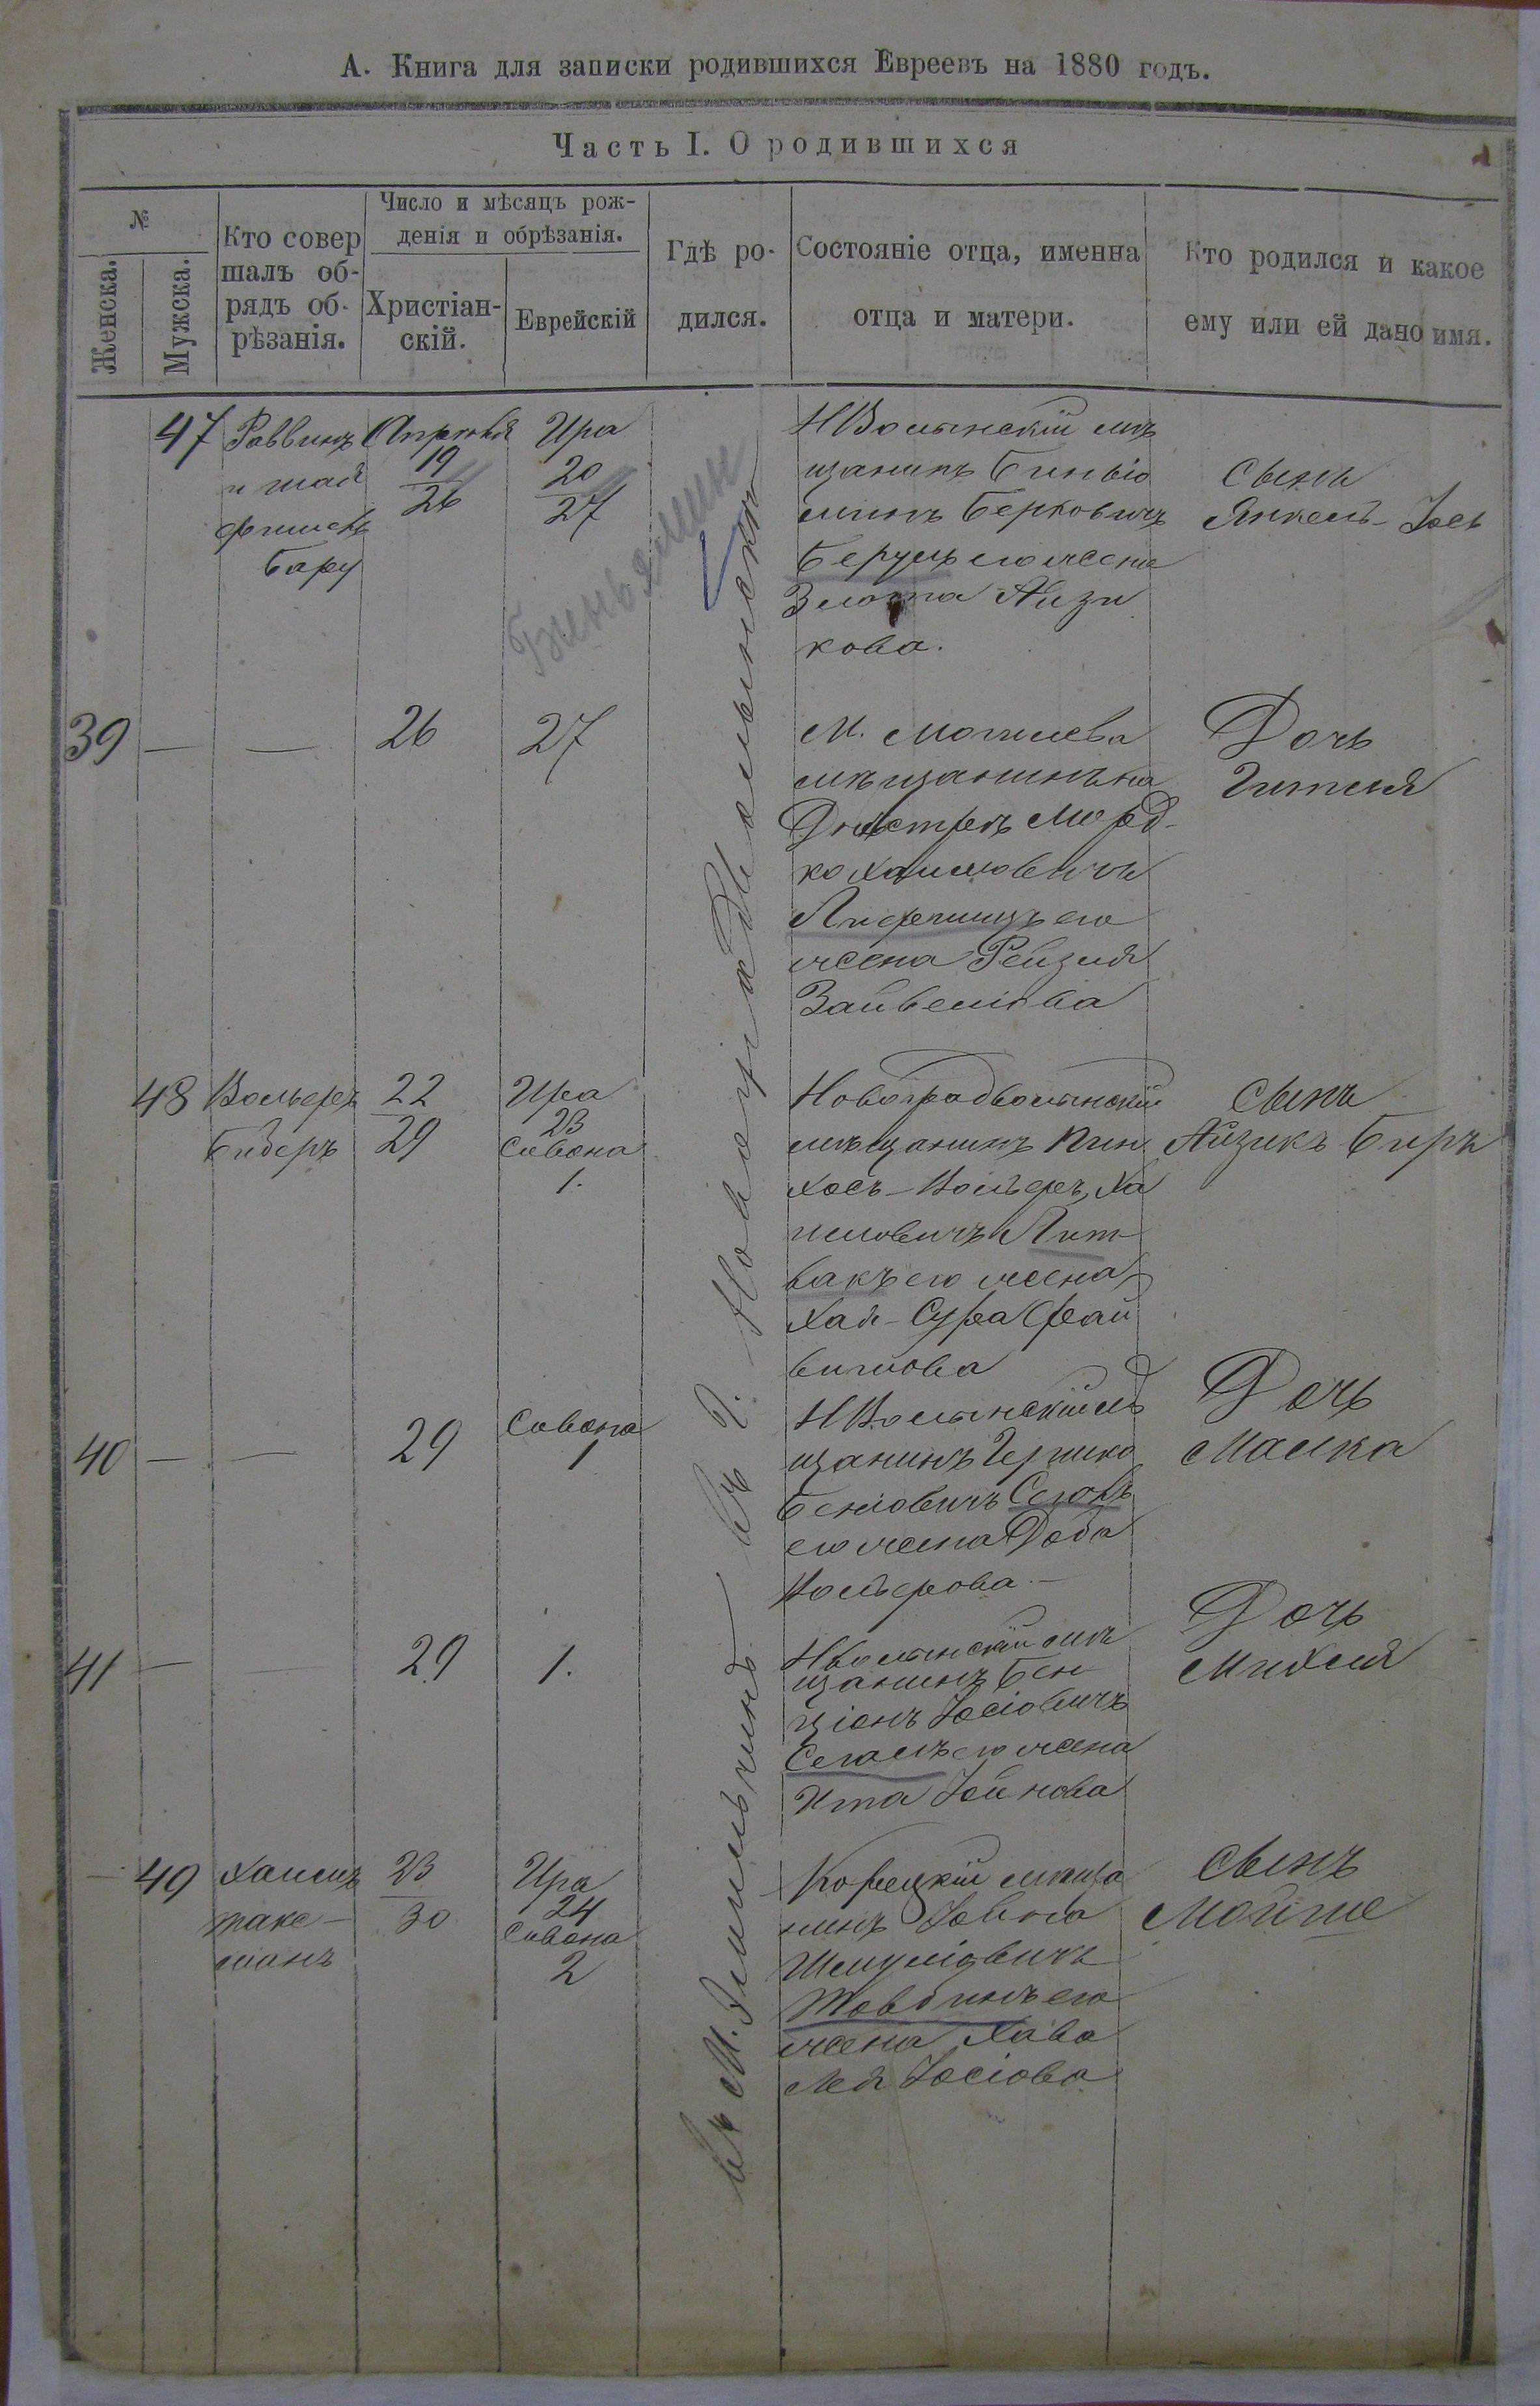 А. Книга для записки родившихся Евреевъ на 1880 годъ.
Часть I. О родившихся
№
Женска.
Мужска.
Кто совер
шалъ об-
рядъ об-
рѣзанія.
Число и мѣсяцъ рож-
денія и обрѣзанія.
Христіан-
скій.
Еврейскій
Гдѣ ро-
дился.
Состояніе отца, именна
отца и матери.
Кто родился и какое
ему или ей дано имя.
47
Раввинъ
и шая
фишель
Бару
Апрѣля
19
26
Ира
20
27
Беньямин
НВолынскій мѣ
щанинъ Биньіо
минъ Берковичъ
Беруць его жена
Злота Айзи
кова.
сынъ
Янкель-Іось
39
26
27
М. Могилева
мѣщанинъ на
Днѣстрѣ Морд-
ко Хаимовичъ
Лифшицъ его
жена Рейзля
Зайвеліова
Дочь
Гитля
48
Вольфъ
Бидеръ
22
29
Ира
23
Сивона
1.
Новоградволынскій
мѣщанинъ Пин
хосъ-Вольфъ Ха
имовичъ Лит-
вакъ его жена
Хая-Сура Фай
вишова
сынъ
Айзикъ Беръ
40
29
Сивона
1
НВолынскій мѣ
щанинъ Гершко
Бенціовичъ
его жена Доба
Вольфова.-
Дочь
Малка
41
29
1.
НВолынскій мѣ
щанинъ Бен-
ціонъ Іосіовичъ
Сегалъ его жена
Ита Іойнова
Дочь
Михля
49
Хаимъ
такс-
манъ
23
30
Ира
24
Сивона
2
Корецкій мѣща
нинъ Іойна
Шмуліовичъ
Товбинъ его
жена Хава
Лея Іосіова
сынъ
Мойше
въ М. Эмильчинѣ — въ г. Новоградволынскѣ